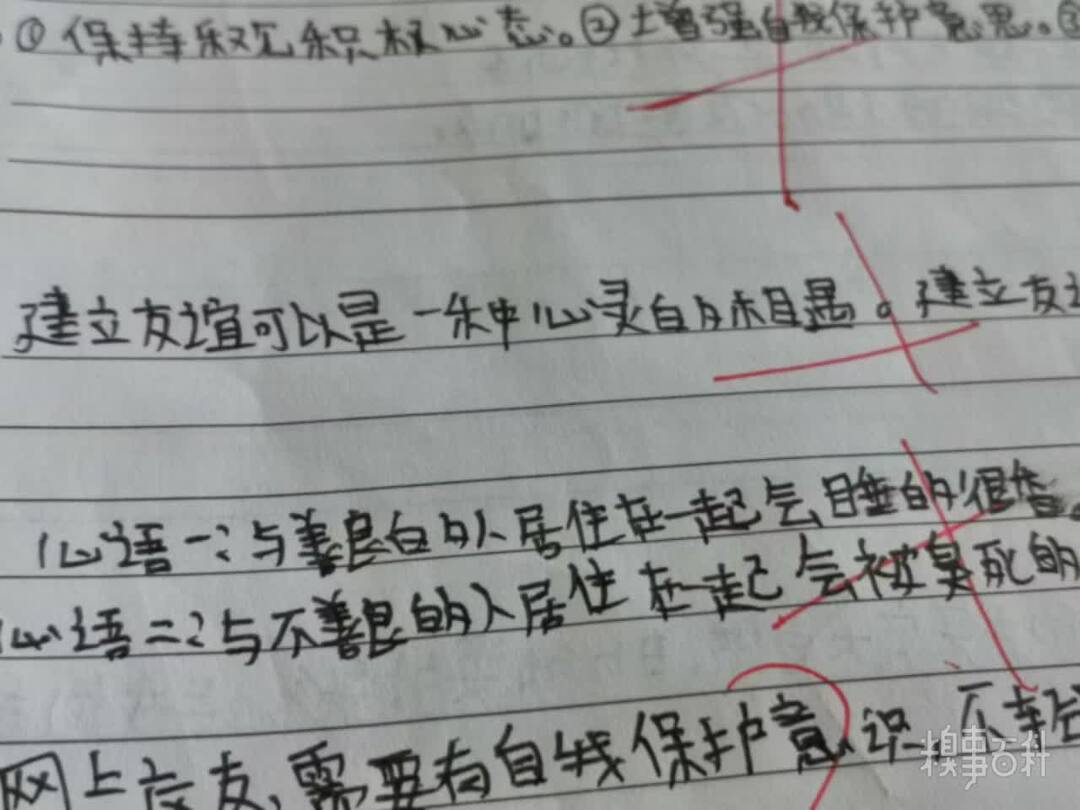 ①保持乐观积极心态。②增强自我保护意思。③
建立友谊可以是一种心灵的相遇。建立友
心语一:与善良的人居住在一起会睡的很香。
心语二:与不善良的人居住在一起会被臭死的
网上交友,需要有自我保护意识,不轻
糗事百科